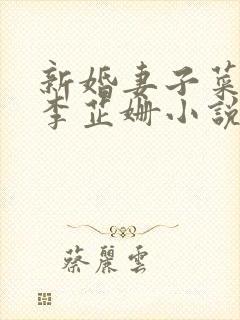 新婚妻子菜
李芷姗小說
蔡麗雲